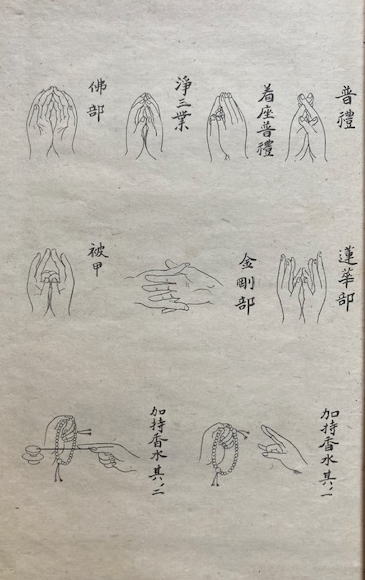 普禮
着座普禮
淨三業
佛部
蓮華部
金剛部
被甲
加持香水其ノ一
加持香水其ノ二